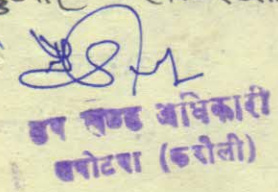 उप खण्ड अधिकारी
सपोटरा (करौली)